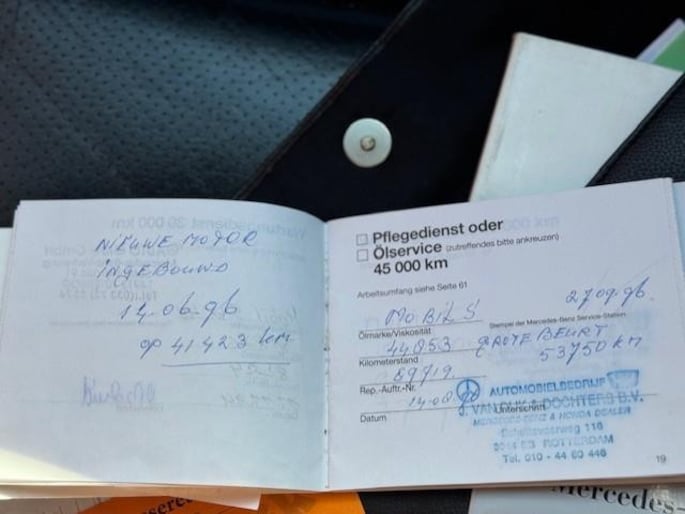 NIEUWE MOTOR
INGEBOUWD
14.06.96
op 41423 km
Pflegedienst oder
Ölservice (zutreffendes bitte ankreuzen)
45 000 km
Arbeitsumfang siehe Seite 61
27 09.96.
MOBIL S
Ölmarke/Viskosität
Stempel der Mercedes-Benz Service-Station
44853
GROTE BEURT
Kilometerstand
53750 km
89719
Rep.-Auftr.-Nr.
14-08-96
Datum
Unterschrift
AUTOMOBIELBEDRIJF
& DOCHTERS B.V.
MERCEDES-BENZ & HONDA DEALER
116
ROTTERDAM
Tel. 010 - 44 60 446
19
Mercedes-